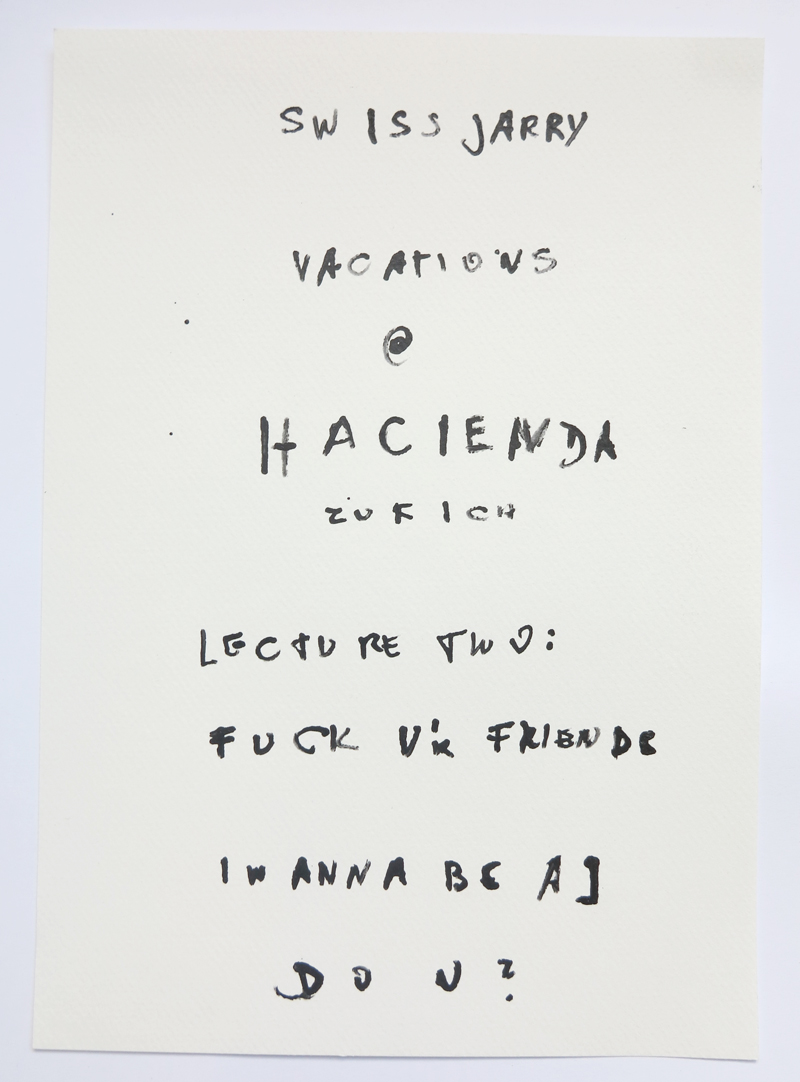 SWISS JARRY
VACATIONS
@
HACIENDA
ZURICH
LECTURE TWO:
FUCK U'R FRIENDS
I WANNA BE AJ
DO U?